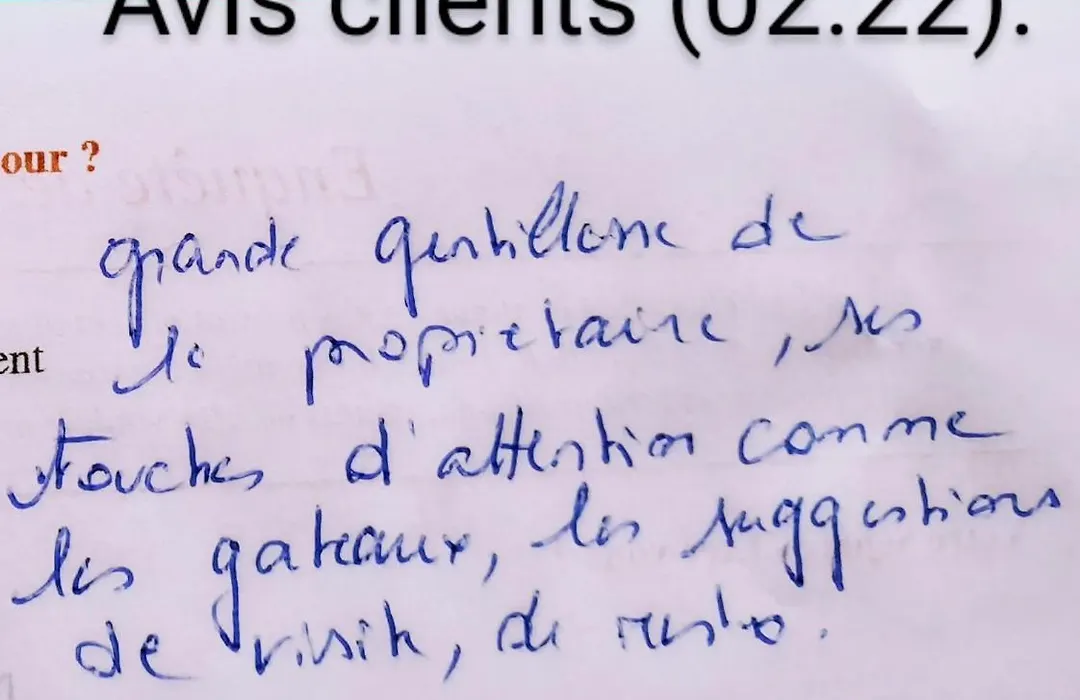 Avis clients (02.22).
our ?
grande gentillesse de
la propriétaire, ses
ent
touches d'attention comme
les gateaux, les suggestions
de visite, de resto.